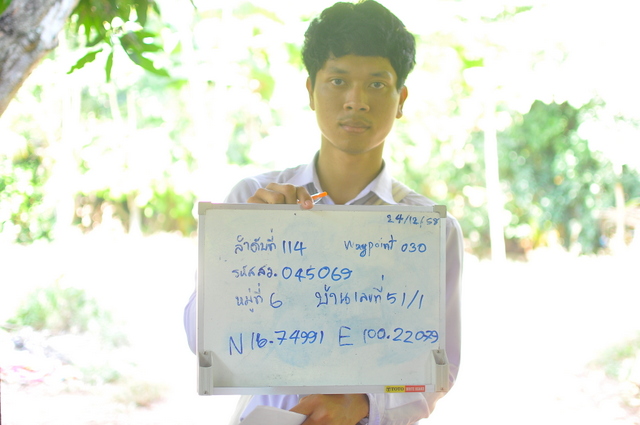 24/12/58
ลำดับที่ 114 waypoint 030
รหัสสว. 045069
หมู่ที่ 6 บ้านเลขที่ 51/1
N 16.74991 E 100.22079